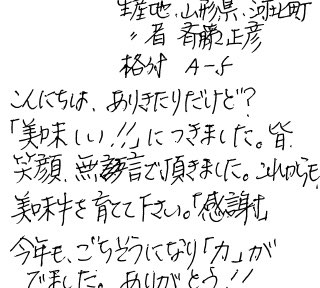 生産地、山形県、河北町
〃者 斉藤正彦
格付 A-5
こんにちは、ありきたりだけど?
「美味しい!!」につきました。皆
笑顔、無言で頂きました。これからも
美味牛を育てて下さい。「感謝」
今年も、ごちそうになり「力」が
でました。ありがとう!!